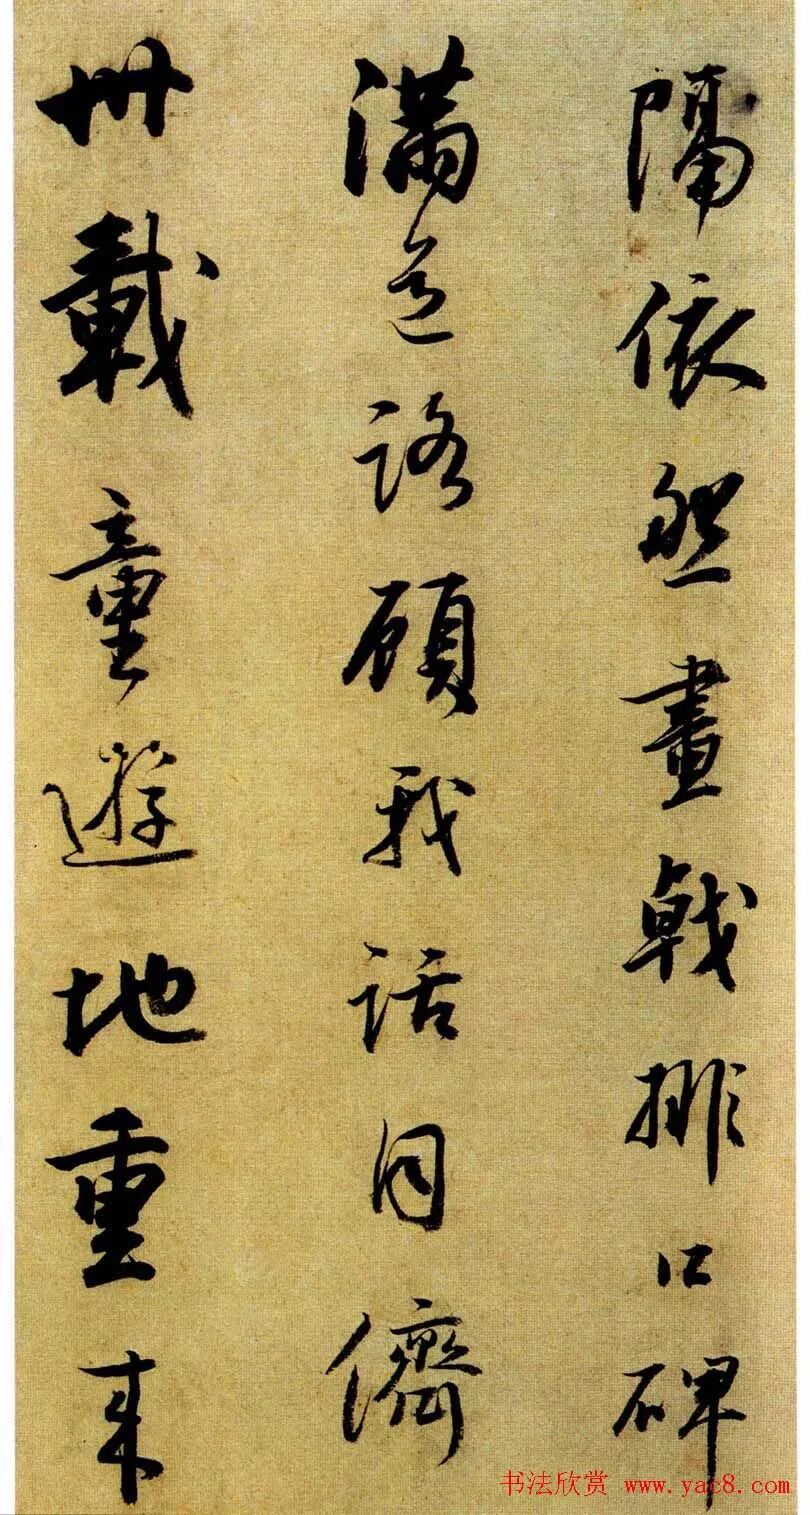 隔依然畫戟排口碑
滿道路顧我話同儕
卅載童遊地重来
书法欣赏 www.yac8.com